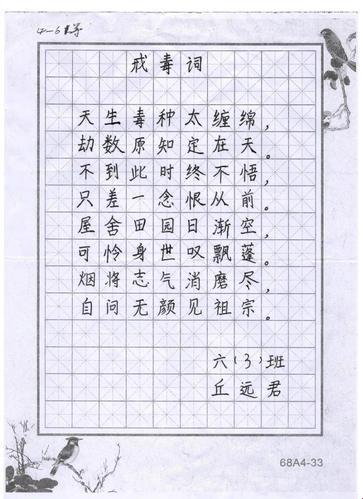 戒毒词
天生毒种太缠绵，
劫数原知定在天。
不到此时终不悟，
只差一念恨从前。
屋舍田园日渐空，
可怜身世叹飘蓬。
烟将志气消磨尽，
自问无颜见祖宗。
六（3）班
丘远君
68A4-33